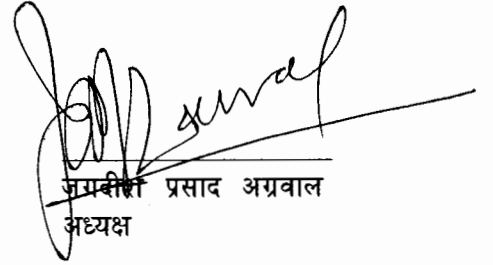 जगदीश प्रसाद अग्रवाल
अध्यक्ष